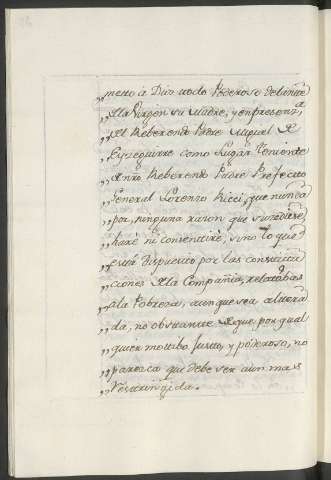 „meto à Dios todo Poderoso delante
„de la Virgen su Madre, y en presenz.ª
„del Reberendo Padre Miguel de
„Eyseguirre como Lugar Teniente
„de nro Reberendo Padre Prefecto
„General Lorenzo Ricci, que nunca
„por, ninguna razon que suzediere,
„haré ni consentiré, sino lo que
„está dispuesto por las constitu
„ciones de la Compañia, relatibas
„à la Pobreza, aunque sea altera
„da, no obstante de que por qual
„quier motibo Justo, y poderoso, no
„parezca que debe ser aun mas
„restringida.